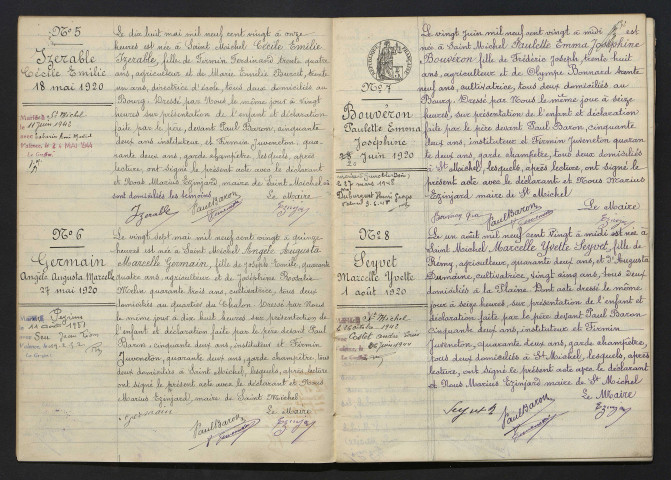 No 5
Izerable
Cécile Emilie
18 mai 1920
St Michel
11 Juin 1942
Le dix huit mai mil neuf cent vingt à onze
heures est née à Saint Michel Cécile Emilie
Izerable, fille de Firmin Ferdinand trente quatre
ans, agriculteur et de Marie Emilie trente
un ans, directrice d'école, tous deux domiciliés au
Bourg. Dressé par Nous le même jour à vingt
heures sur présentation de l'enfant et déclaration
faite par le père, devant Paul Baron, cinquante
deux ans, instituteur et Firmin Juveneton, qua-
rante deux ans, garde champêtre, lesquels, après
lecture, ont signé le présent acte avec le déclarant
et Nous Marius Ezinjard maire de Saint Michel où
sont domiciliés les témoins
Le Maire
Izerable
Paul Baron
Juveneton
No 6
Germain
Angèle Augusta Marcelle
27 mai 1920
Le vingt sept mai mil neuf cent vingt à quinze
heures est née à Saint Michel Angèle Augusta
Marcelle Germain, fille de Joseph Emile, quarante
quatre ans agriculteur et de Joséphine Rosalie
Merlin quarante trois ans, cultivatrice, tous deux
domiciliés au quartier du Chalon. Dressé par Nous
le même jour à dix huit heures sur présentation de
l'enfant et déclaration faite par le père devant Paul
Baron, cinquante deux ans, instituteur et Firmin
Juveneton, quarante deux ans, garde champêtre, tous
deux domiciliés à Saint Michel, lesquels, après lecture
ont signé le présent acte avec le déclarant et Nous
Marius Ezinjard, maire de Saint Michel.
Germain
Le Maire
Paul Baron
Juveneton
No 7
Bouvéron
Paulette Emma
Joséphine
20 Juin 1920
le 27 mars 1948
Le vingt juin mil neuf cent vingt à midi est
née à Saint Michel Paulette Emma Joséphine
Bouvéron fille de Frédéric Joseph, trente huit
ans, agriculteur et de Olympe Bonnard trente
neuf ans, cultivatrice, tous deux domiciliés au
Bourg. Dressé par Nous le même jour à seize
heures, sur présentation de l'enfant et déclaration
faite par le père, devant Paul Baron, cinquante
deux ans, instituteur et Firmin Juveneton quaran
te deux ans, garde champêtre, tous deux domiciliés
à St Michel, lesquels, après lecture, ont signé le
présent acte avec le déclarant et Nous Marius
Ezinjard maire de St Michel
Le Maire
Paul Baron
Juveneton
No 8
Seyvet
Marcelle Yvette
1 août 1920
St Michel
Le un août mil neuf cent vingt à midi est née à
Saint Michel Marcelle Yvette Seyvet, fille de
Rémy, agriculteur, quarante deux ans, et d'Augusta
cultivatrice, vingt cinq ans, tous deux
domiciliés à la Plaine. Dont acte dressé le même
jour à seize heures, sur présentation de l'enfant et
déclaration faite par le père, devant Paul Baron
cinquante deux ans, instituteur et Firmin
Juveneton, quarante deux ans, garde champêtre,
tous deux domiciliés à St Michel, lesquels, après
lecture, ont signé le présent acte avec le déclarant
et Nous Marius Ezinjard maire de St Michel
Le Maire
Seyvet
Paul Baron
Juveneton